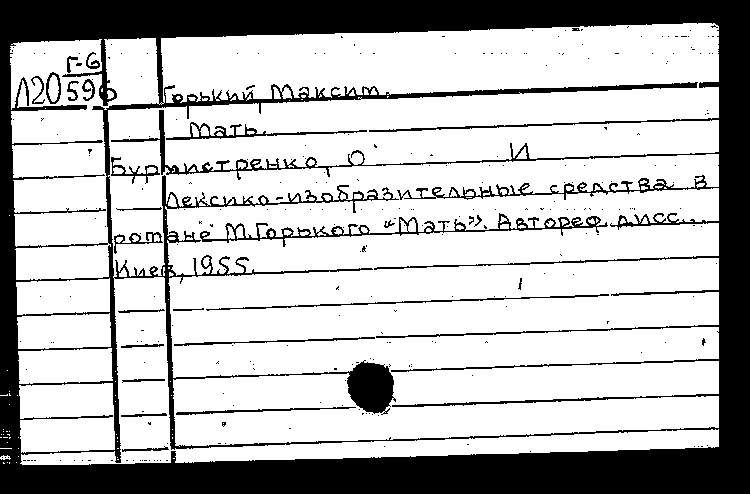 Г-6
Л20 596
Горький, Максим.
Мать.
Бурмистренко, О И
Лексико-изобразительные средства в
романе М.Горького "Мать". Автореф. дисс...
Киев, 1955.